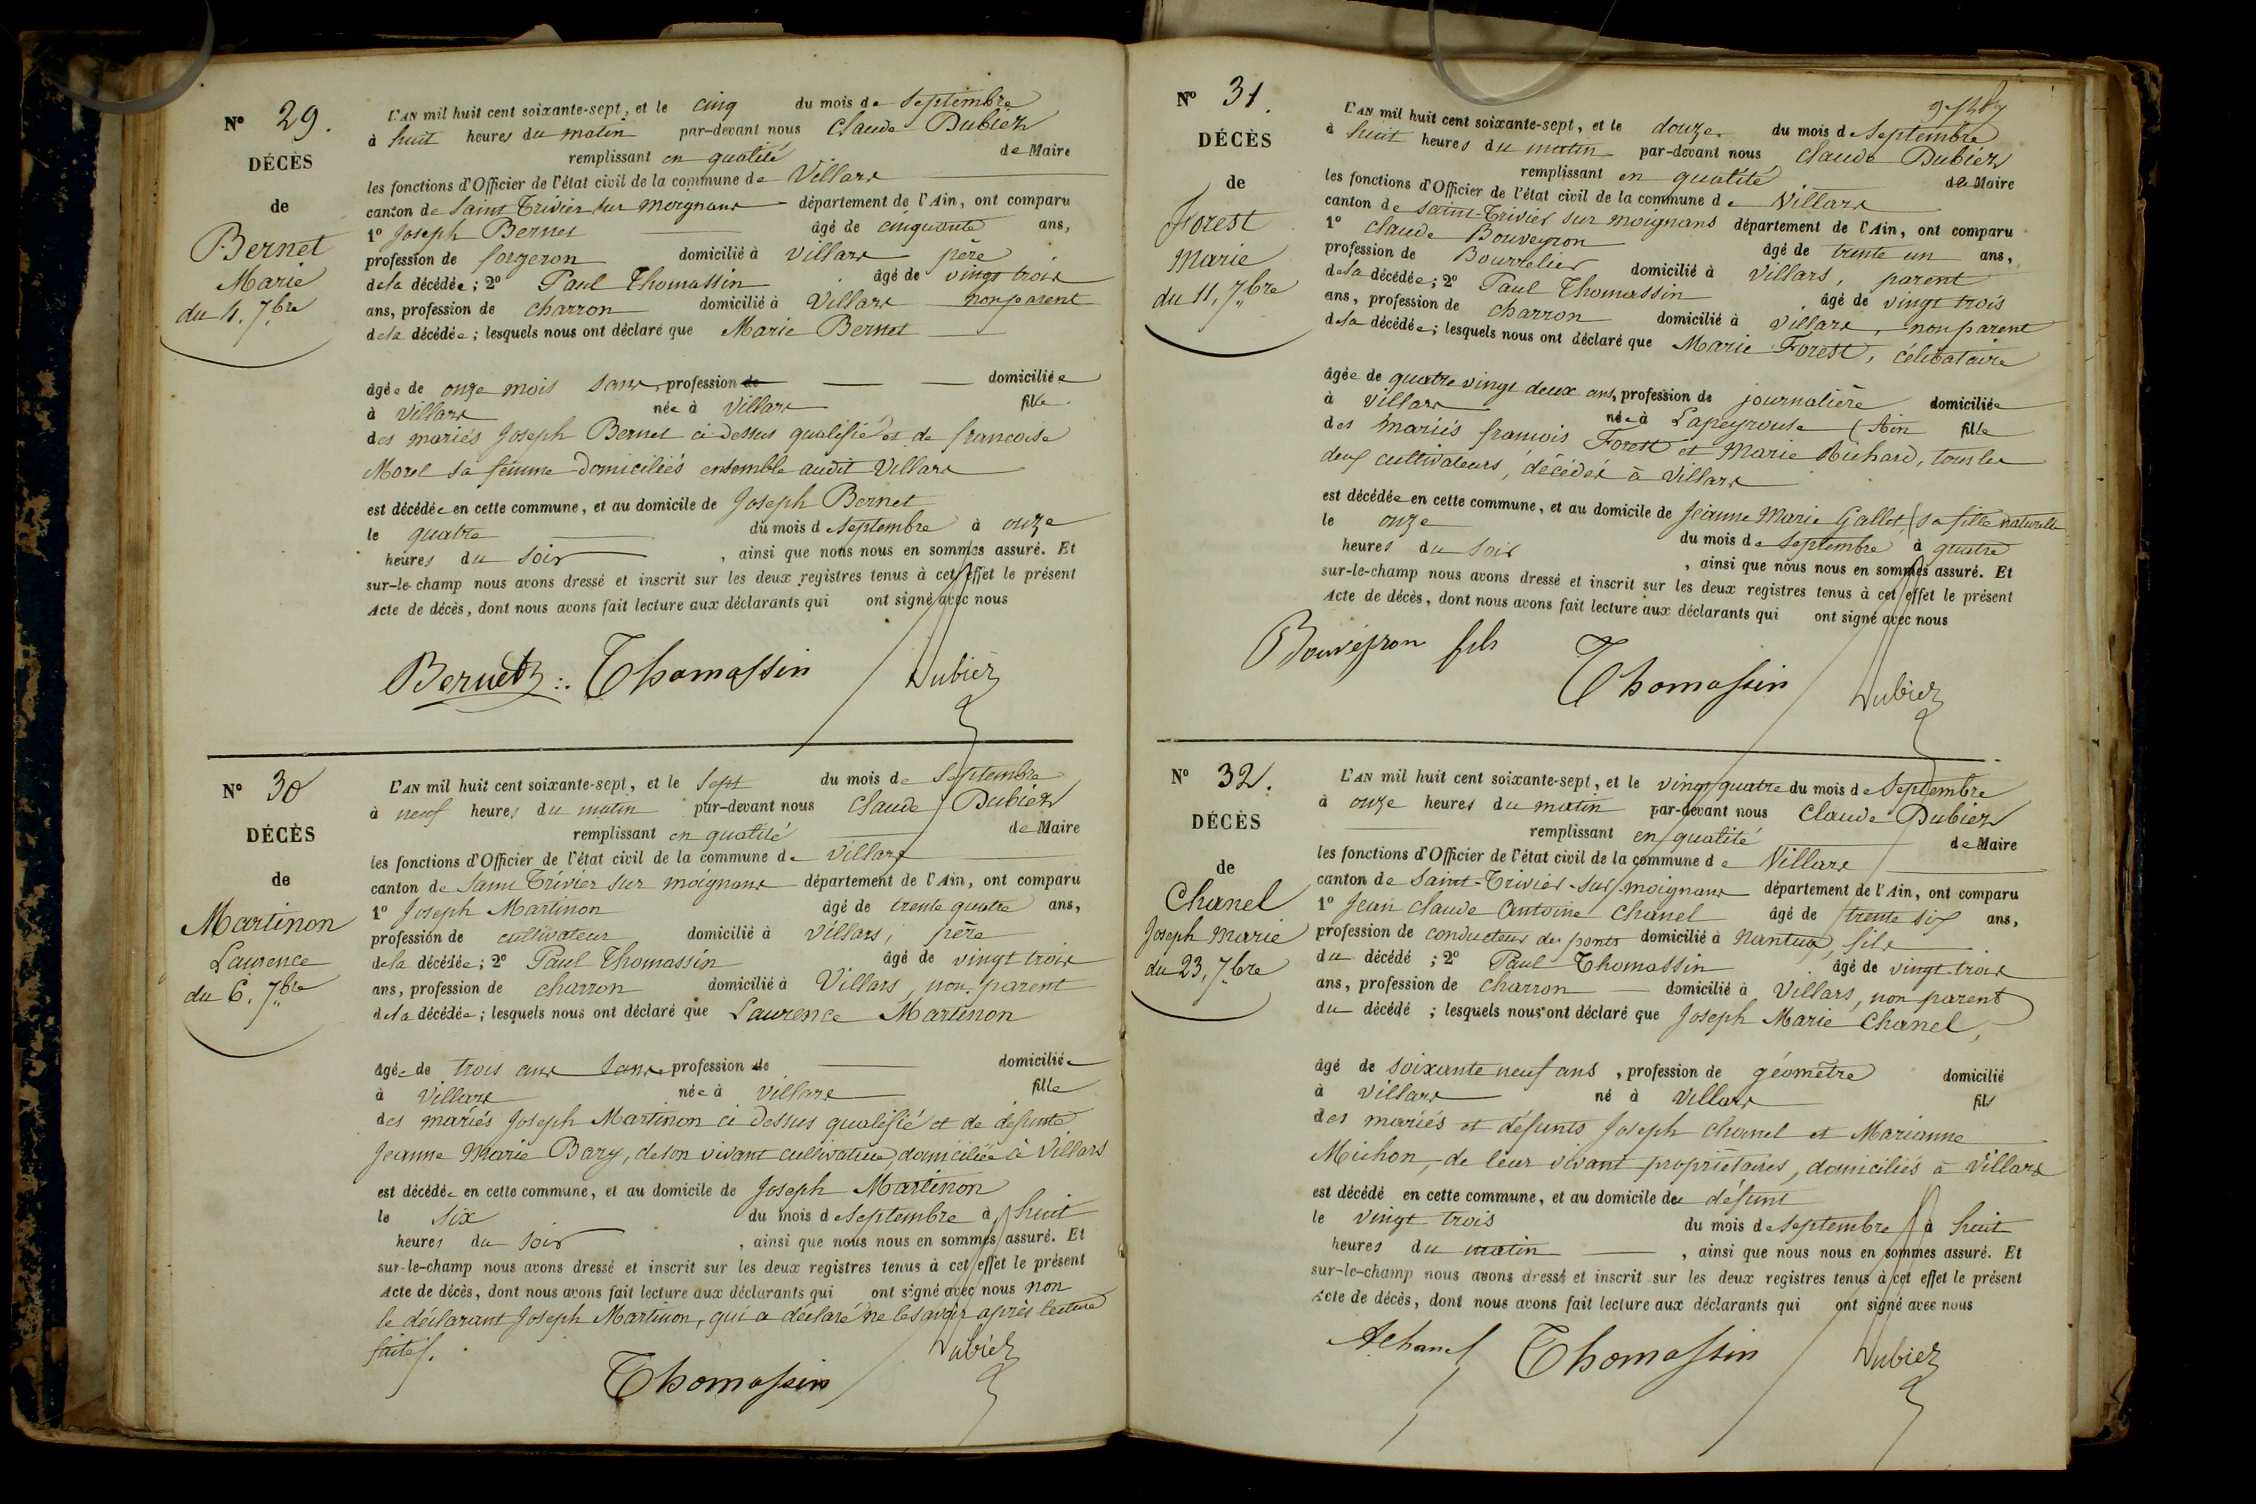 N° 29.
DÉCÈS
de
Bernet
Marie
du 4. 7bre
L'AN mil huit cent soixante-sept, et le cinq du mois de Septembre
à huit heures du matin par-devant nous Claude Dubiez
remplissant en qualité de Maire
les fonctions d'Officier de l'état civil de la commune de Villars
canton de Saint Trivier sur moignans département de l'Ain, ont comparu
1° Joseph Bernet âgé de cinquante ans,
profession de forgeron domicilié à Villars père
de la décédée; 2° Paul Thomassin âgé de vingt trois
ans, profession de charron domicilié à Villars non parent
de la décédée; lesquels nous ont déclaré que Marie Bernet
âgée de onze mois sans profession de domiciliée
à Villars née à Villars fille
des mariés Joseph Bernet ci dessus qualifié et de francoise
Morel sa femme domiciliés ensemble audit Villars
est décédée en cette commune, et au domicile de Joseph Bernet
le quatre du mois de Septembre à onze
heures du soir, ainsi que nous nous en sommes assuré. Et
sur-le-champ nous avons dressé et inscrit sur les deux registres tenus à cet effet le présent
Acte de décès, dont nous avons fait lecture aux déclarants qui ont signé avec nous
Bernet Thomassin Dubiez
N° 30
DÉCÈS
de
Martinon
Laurence
du 6. 7bre
L'AN mil huit cent soixante-sept, et le sept du mois de Septembre
à neuf heures du matin par-devant nous Claude Dubiez
remplissant en qualité de Maire
les fonctions d'Officier de l'état civil de la commune de Villars
canton de Saint Trivier sur moignans département de l'Ain, ont comparu
1° Joseph Martinon âgé de trente quatre ans,
profession de cultivateur domicilié à Villars, père
de la décédée; 2° Paul Thomassin âgé de vingt trois
ans, profession de charron domicilié à Villars, non parent
de la décédée; lesquels nous ont déclaré que Laurence Martinon
âgée de trois ans sans profession de domiciliée
à Villars née à Villars fille
des mariés Joseph Martinon ci dessus qualifié et de défunte
Jeanne Marie Bary, de son vivant cultivatrice, domiciliée à Villars
est décédée en cette commune, et au domicile de Joseph Martinon
le six du mois de Septembre à huit
heures du soir, ainsi que nous nous en sommes assuré. Et
sur-le-champ nous avons dressé et inscrit sur les deux registres tenus à cet effet le présent
Acte de décès, dont nous avons fait lecture aux déclarants qui ont signé avec nous non
le déclarant Joseph Martinon, qui a déclaré ne le savoir après lecture
faite.
Thomassin Dubiez
N° 31.
DÉCÈS
de
Forest
Marie
du 11, 7bre
L'AN mil huit cent soixante-sept, et le douze du mois de Septembre
à huit heures du matin par-devant nous Claude Dubiez
remplissant en qualité de Maire
les fonctions d'Officier de l'état civil de la commune de Villars
canton de Saint-Trivier sur moignans département de l'Ain, ont comparu
1° Claude Bouveyron âgé de trente un ans,
profession de Bourrelier domicilié à Villars, parent
de la décédée; 2° Paul Thomassin âgé de vingt trois
ans, profession de charron domicilié à Villars, non parent
de la décédée; lesquels nous ont déclaré que Marie Forest, célibataire
âgée de quatre vingt deux ans, profession de journalière domiciliée
à Villars née à Lapeyrouse (Ain fille
des mariés francois Forest et Marie Richard, tous les
deux cultivateurs, décédés à Villars
est décédée en cette commune, et au domicile de Jeanne Marie Gallet, (sa fille naturelle
le onze du mois de Septembre à quatre
heures du soir, ainsi que nous nous en sommes assuré. Et
sur-le-champ nous avons dressé et inscrit sur les deux registres tenus à cet effet le présent
Acte de décès, dont nous avons fait lecture aux déclarants qui ont signé avec nous
Bouveyron fils Thomassin Dubiez
N° 32.
DÉCÈS
de
Chanel
Joseph Marie
du 23, 7bre
L'AN mil huit cent soixante-sept, et le vingt quatre du mois de Septembre
à onze heures du matin par-devant nous Claude Dubiez
remplissant en qualité de Maire
les fonctions d'Officier de l'état civil de la commune de Villars
canton de Saint-Trivier-sur moignans département de l'Ain, ont comparu
1° Jean Claude Antoine Chanel âgé de trente six ans,
profession de conducteur des ponts domicilié à Nantua, fils
du décédé; 2° Paul Thomassin âgé de vingt trois
ans, profession de charron domicilié à Villars, non parent
du décédé; lesquels nous ont déclaré que Joseph Marie Chanel,
âgé de soixante neuf ans, profession de géomètre domicilié
à Villars né à Villars fils
des mariés et défunts Joseph Chanel et Marianne
Michon, de leur vivant propriétaires, domiciliés à Villars
est décédé en cette commune, et au domicile du défunt
le vingt trois du mois de Septembre à huit
heures du matin, ainsi que nous nous en sommes assuré. Et
sur-le-champ nous avons dressé et inscrit sur les deux registres tenus à cet effet le présent
Acte de décès, dont nous avons fait lecture aux déclarants qui ont signé avec nous
AChanel Thomassin Dubiez